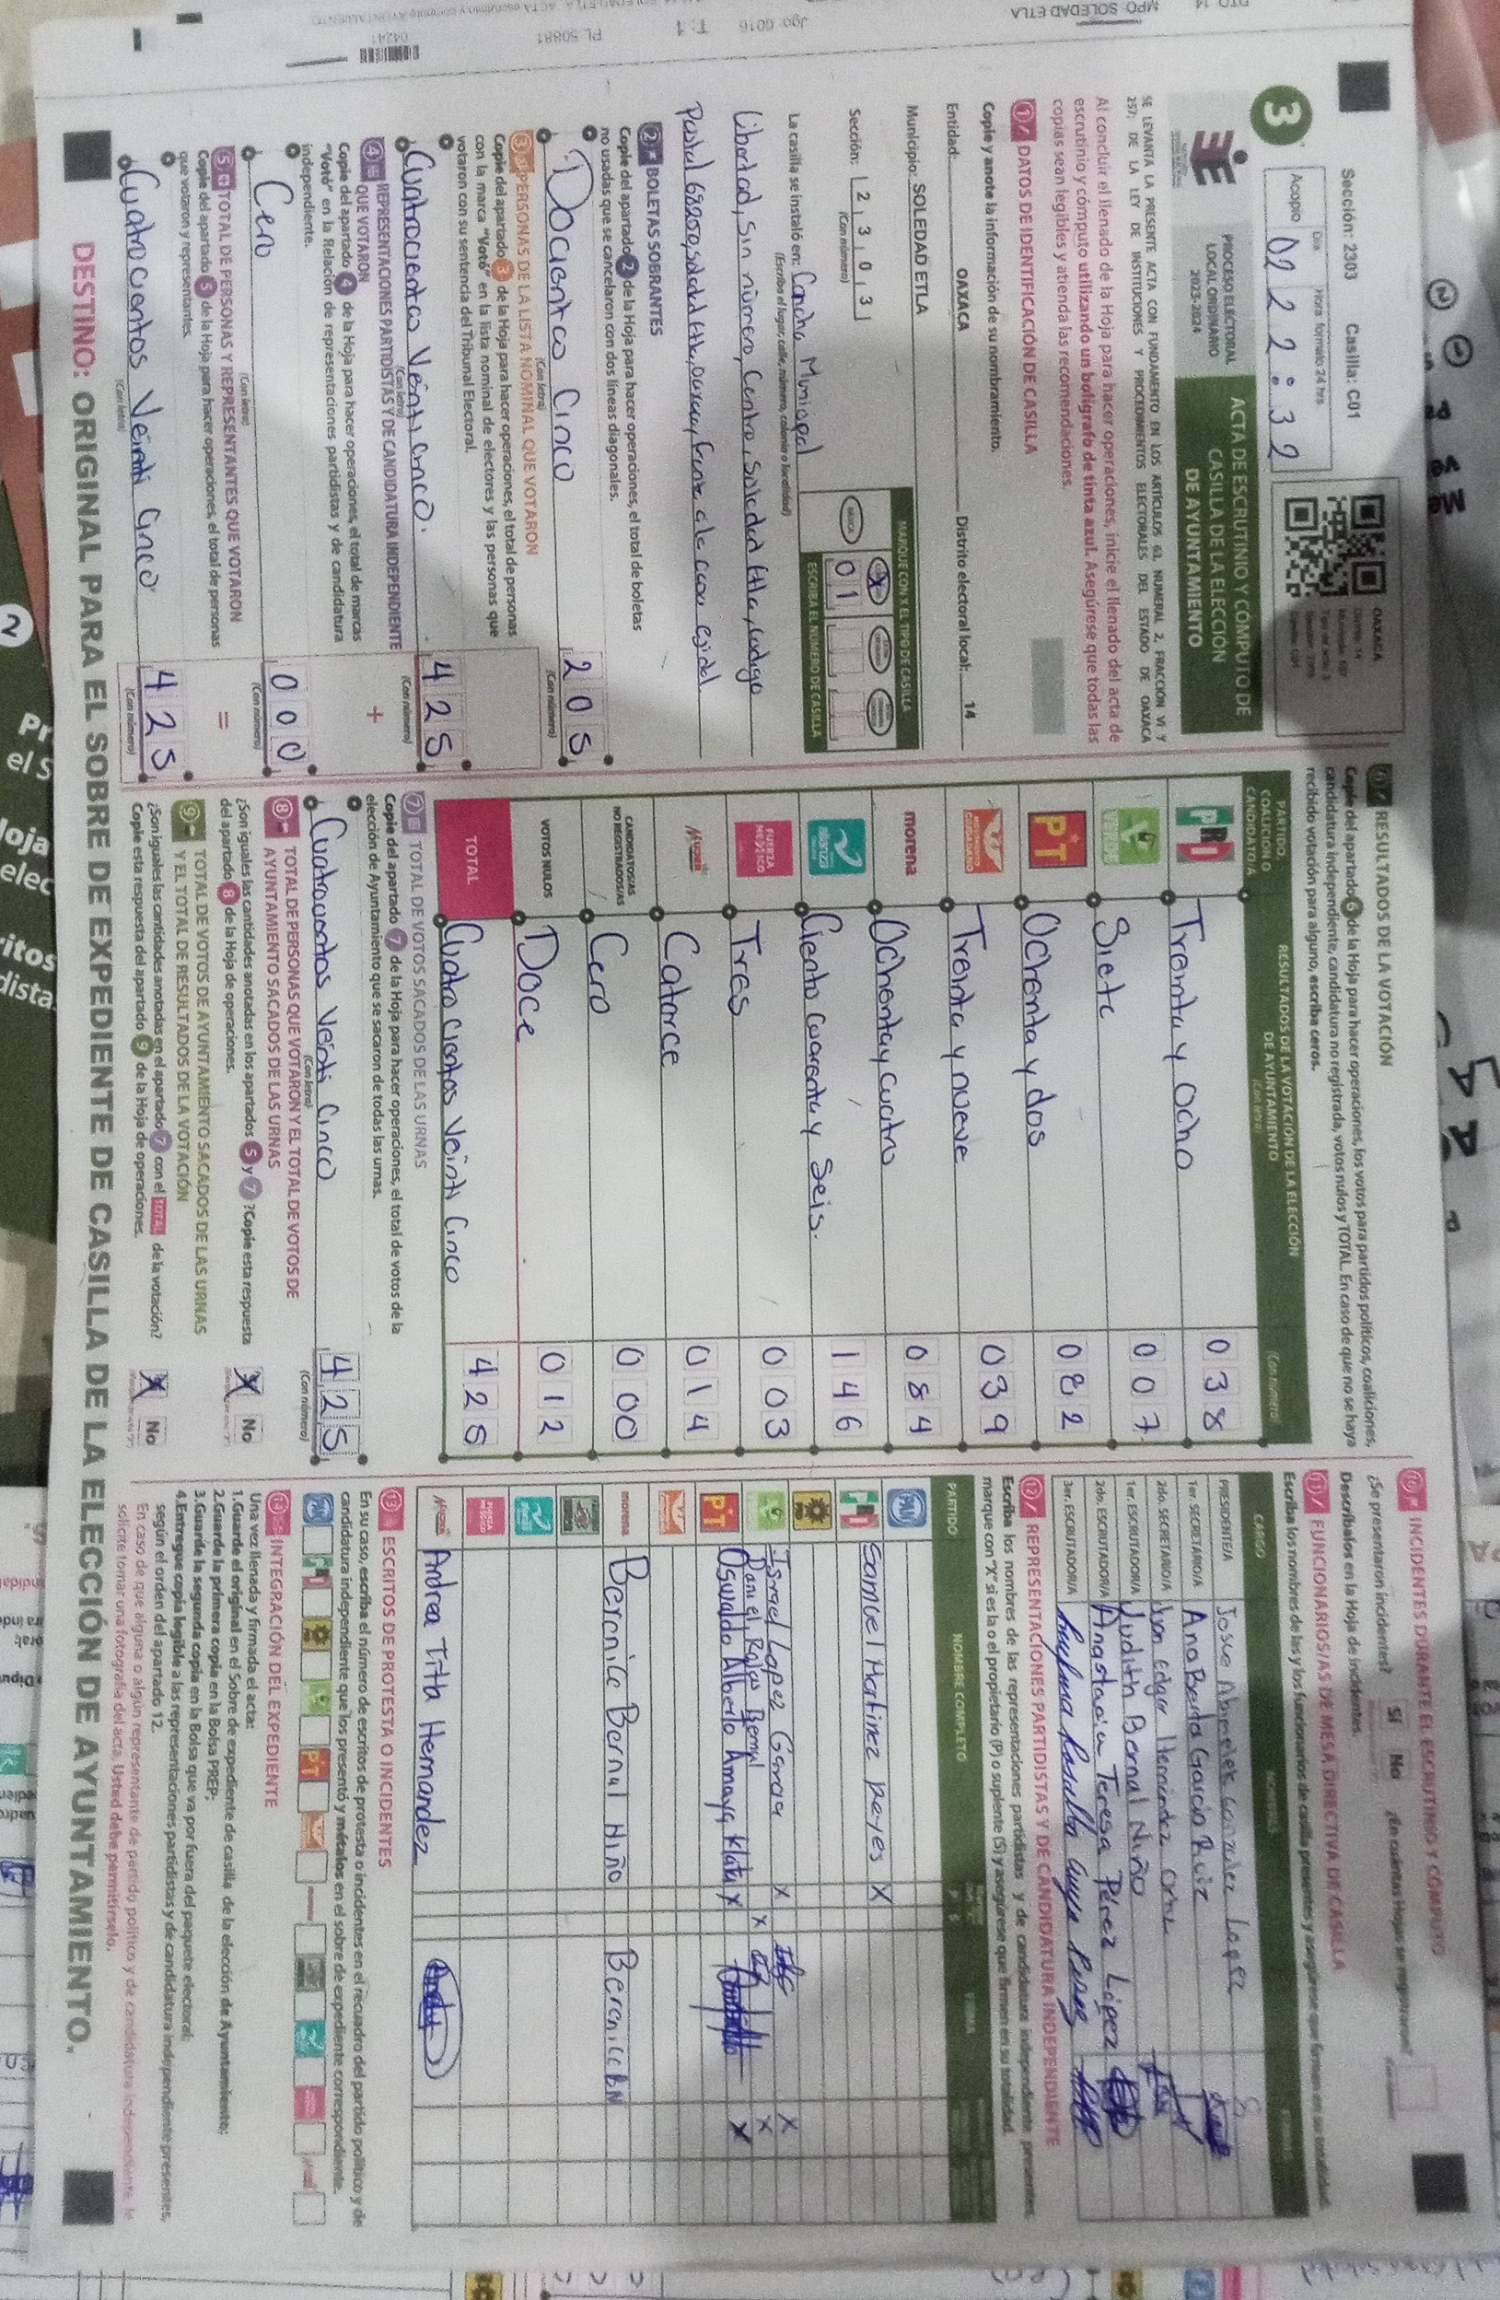 Sección: 2303 Casilla: C01
Día Hora formato 24 hrs.
Acopio 02 22:32
OAXACA
3
PROCESO ELECTORAL
LOCAL ORDINARIO
2023-2024
ACTA DE ESCRUTINIO Y CÓMPUTO DE
CASILLA DE LA ELECCIÓN
DE AYUNTAMIENTO
SE LEVANTA LA PRESENTE ACTA CON FUNDAMENTO EN LOS ARTÍCULOS 63, NUMERAL 2, FRACCIÓN VI Y
257; DE LA LEY DE INSTITUCIONES Y PROCEDIMIENTOS ELECTORALES DEL ESTADO DE OAXACA
Al concluir el llenado de la Hoja para hacer operaciones, inicie el llenado del acta de
escrutinio y cómputo utilizando un bolígrafo de tinta azul. Asegúrese que todas las
copias sean legibles y atienda las recomendaciones.
1 DATOS DE IDENTIFICACIÓN DE CASILLA
Copie y anote la información de su nombramiento.
Entidad: OAXACA Distrito electoral local: 14
Municipio: SOLEDAD ETLA
MARQUE CON X EL TIPO DE CASILLA
Sección: 2 3 0 3
(Con número)
X
0 1
ESCRIBA EL NÚMERO DE CASILLA
La casilla se instaló en: Cancha Municipal
(Escriba el lugar, calle, número, colonia o localidad)
Libertad, Sin número, Centro, Soledad Etla, Codigo
Postal 68200, Soledad Etla, Oaxaca, frente al casa ejidal
2 BOLETAS SOBRANTES
Copie del apartado 2 de la Hoja para hacer operaciones, el total de boletas
no usadas que se cancelaron con dos líneas diagonales.
Docientos Cinco 205
(Con letra) (Con número)
3 PERSONAS DE LA LISTA NOMINAL QUE VOTARON
Copie del apartado 3 de la Hoja para hacer operaciones, el total de personas
con la marca "Votó" en la lista nominal de electores y las personas que
votaron con su sentencia del Tribunal Electoral.
Cuatrocientos Veinti cinco. 425
(Con letra) (Con número)
4 REPRESENTACIONES PARTIDISTAS Y DE CANDIDATURA INDEPENDIENTE
QUE VOTARON
+
Copie del apartado 4 de la Hoja para hacer operaciones, el total de marcas
"Votó" en la Relación de representaciones partidistas y de candidatura
independiente.
Cero 000
(Con letra) (Con número)
5 TOTAL DE PERSONAS Y REPRESENTANTES QUE VOTARON
=
Copie del apartado 5 de la Hoja para hacer operaciones, el total de personas
que votaron y representantes.
Cuatrocientos Veinti Cinco 425
(Con letra) (Con número)
6 RESULTADOS DE LA VOTACIÓN
Copie del apartado 6 de la Hoja para hacer operaciones, los votos para partidos políticos, coaliciones,
candidatura independiente, candidatura no registrada, votos nulos y TOTAL. En caso de que no se haya
recibido votación para alguno, escriba ceros.
PARTIDO,
COALICIÓN O
CANDIDATO/A
RESULTADOS DE LA VOTACIÓN DE LA ELECCIÓN
DE AYUNTAMIENTO
(Con letra) (Con número)
PRI Treinta y Ocho 038
VERDE Siete 007
PT Ochenta y dos 082
MOVIMIENTO CIUDADANO Treinta y nueve 039
morena Ochenta y cuatro 084
nueva alianza Ciento Cuarenta y Seis. 146
FUERZA MÉXICO Tres 003
MUJER Catorce 014
CANDIDATOS/AS NO REGISTRADOS/AS Cero 000
VOTOS NULOS Doce 012
TOTAL Cuatro cientos Veinti Cinco 425
7 TOTAL DE VOTOS SACADOS DE LAS URNAS
Copie del apartado 7 de la Hoja para hacer operaciones, el total de votos de la
elección de Ayuntamiento que se sacaron de todas las urnas.
Cuatrocientos Veinti Cinco 425
(Con letra) (Con número)
8 TOTAL DE PERSONAS QUE VOTARON Y EL TOTAL DE VOTOS DE
AYUNTAMIENTO SACADOS DE LAS URNAS
¿Son iguales las cantidades anotadas en los apartados 5 y 7? Copie esta respuesta
del apartado 8 de la Hoja de operaciones.
X No
9 TOTAL DE VOTOS DE AYUNTAMIENTO SACADOS DE LAS URNAS
Y EL TOTAL DE RESULTADOS DE LA VOTACIÓN
¿Son iguales las cantidades anotadas en el apartado 7 con el TOTAL de la votación?
Copie esta respuesta del apartado 9 de la Hoja de operaciones.
X No
10 INCIDENTES DURANTE EL ESCRUTINIO Y CÓMPUTO
¿Se presentaron incidentes? Sí No ¿En cuántas Hojas se registraron?
Descríbalos en la Hoja de incidentes.
11 FUNCIONARIOS/AS DE MESA DIRECTIVA DE CASILLA
Escriba los nombres de las y los funcionarios de casilla presentes y asegúrese que firmen en su totalidad.
CARGO NOMBRES FIRMAS
PRESIDENTE/A Josue Abimelek Gonzalez Lopez
1er. SECRETARIO/A Ana Berta García Ruiz
2do. SECRETARIO/A Ivan Edgar Hernández
1er. ESCRUTADOR/A Judith Bernal Niño
2do. ESCRUTADOR/A Angostacia Teresa Pérez López
3er. ESCRUTADOR/A
12 REPRESENTACIONES PARTIDISTAS Y DE CANDIDATURA INDEPENDIENTE
Escriba los nombres de las representaciones partidistas y de candidatura independiente presentes,
marque con "X" si es la o el propietario (P) o suplente (S) y asegúrese que firmen en su totalidad.
PARTIDO NOMBRE COMPLETO P S FIRMA
PAN
PRI Samuel Martinez Reyes X
Israel Lopez Garcia X X
Daniel Rojas Bernal X X
PT Osvaldo Alberto Amaya X X
morena Berenice Bernal Niño Berenice BN
MUJER Andrea Titta Hernandez
13 ESCRITOS DE PROTESTA O INCIDENTES
En su caso, escriba el número de escritos de protesta o incidentes en el recuadro del partido político y de
candidatura independiente que los presentó y métalos en el sobre de expediente correspondiente.
14 INTEGRACIÓN DEL EXPEDIENTE
Una vez llenada y firmada el acta:
1.Guarde el original en el Sobre de expediente de casilla de la elección de Ayuntamiento;
2.Guarde la primera copia en la Bolsa PREP;
3.Guarde la segunda copia en la Bolsa que va por fuera del paquete electoral;
4.Entregue copia legible a las representaciones partidistas y de candidatura independiente presentes,
según el orden del apartado 12.
En caso de que alguna o algún representante de partido político y de candidatura independiente le
solicite tomar una fotografía del acta, Usted debe permitírselo.
DESTINO: ORIGINAL PARA EL SOBRE DE EXPEDIENTE DE CASILLA DE LA ELECCIÓN DE AYUNTAMIENTO.
MPO: SOLEDAD ETLA
PL 50881
04241
2